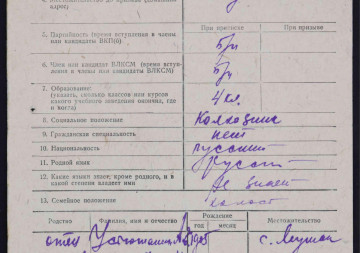 адрес)
При приписке При призыве
5. Партийность (время вступления в члены
или кандидаты ВКП(б)
Б/п
6. Член или кандидат ВЛКСМ (время вступ-
ления в члены или кандидаты ВЛКСМ)
Б/п
7. Образование:
(указать, сколько классов или курсов
какого учебного заведения окончил, где
и когда)
4 кл.
8. Социальное положение
Колхозник
9. Гражданская специальность
нет
10. Национальность
русский
11. Родной язык
русский
12. Какие языки знает, кроме родного, и в
какой степени владеет ими
не знает
13. Семейное положение
холост
Родство Фамилия, имя и отчество Рождение Местожительство
год месяц
отец 1905 с.